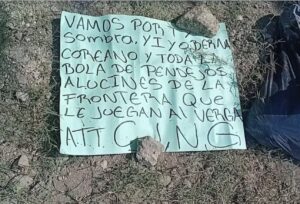 VAMOS POR TI
SOMBRO. Y I Y O, DERMA
COREANO Y TODA LA
BOLA DE PENDEJOS
ALUCINES DE LA
FRONTERA QUE
LE JUEGAN A VERGA
ATT. C.J.N.G